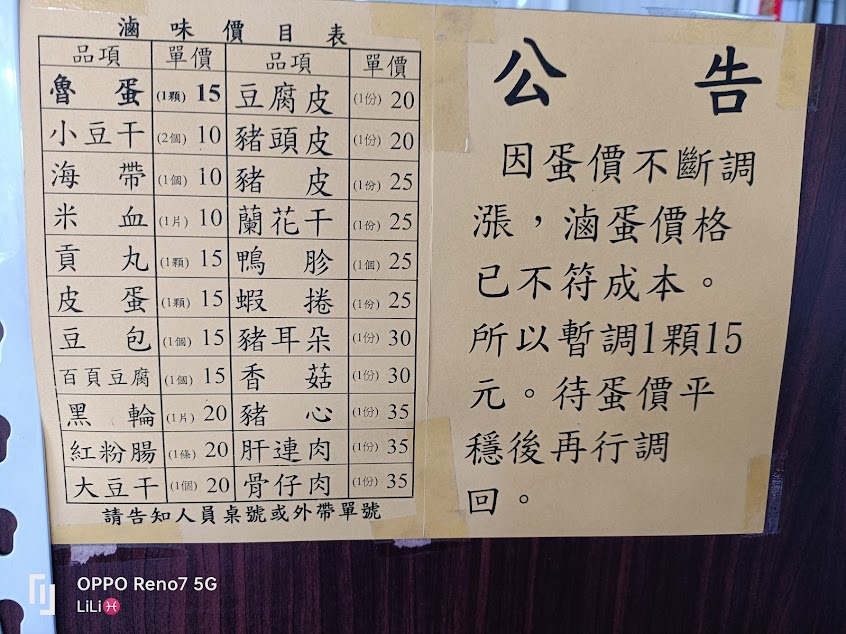 滷味價目表
品項 單價 品項 單價
魯蛋 (1顆) 15 豆腐皮 (1份) 20
小豆干 (2個) 10 豬頭皮 (1份) 20
海帶 (1個) 10 豬皮 (1份) 25
米血 (1片) 10 蘭花干 (1份) 25
貢丸 (1顆) 15 鴨胗 (1個) 25
皮蛋 (1顆) 15 蝦捲 (1份) 25
豆包 (1個) 15 豬耳朵 (1份) 30
百頁豆腐 (1個) 15 香菇 (1份) 30
黑輪 (1片) 20 豬心 (1份) 35
紅粉腸 (1條) 20 肝連肉 (1份) 35
大豆干 (1個) 20 骨仔肉 (1份) 35
請告知人員桌號或外帶單號
公告
因蛋價不斷調
漲，滷蛋價格
已不符成本。
所以暫調1顆15
元。待蛋價平
穩後再行調
回。
OPPO Reno7 5G
LiLi♓